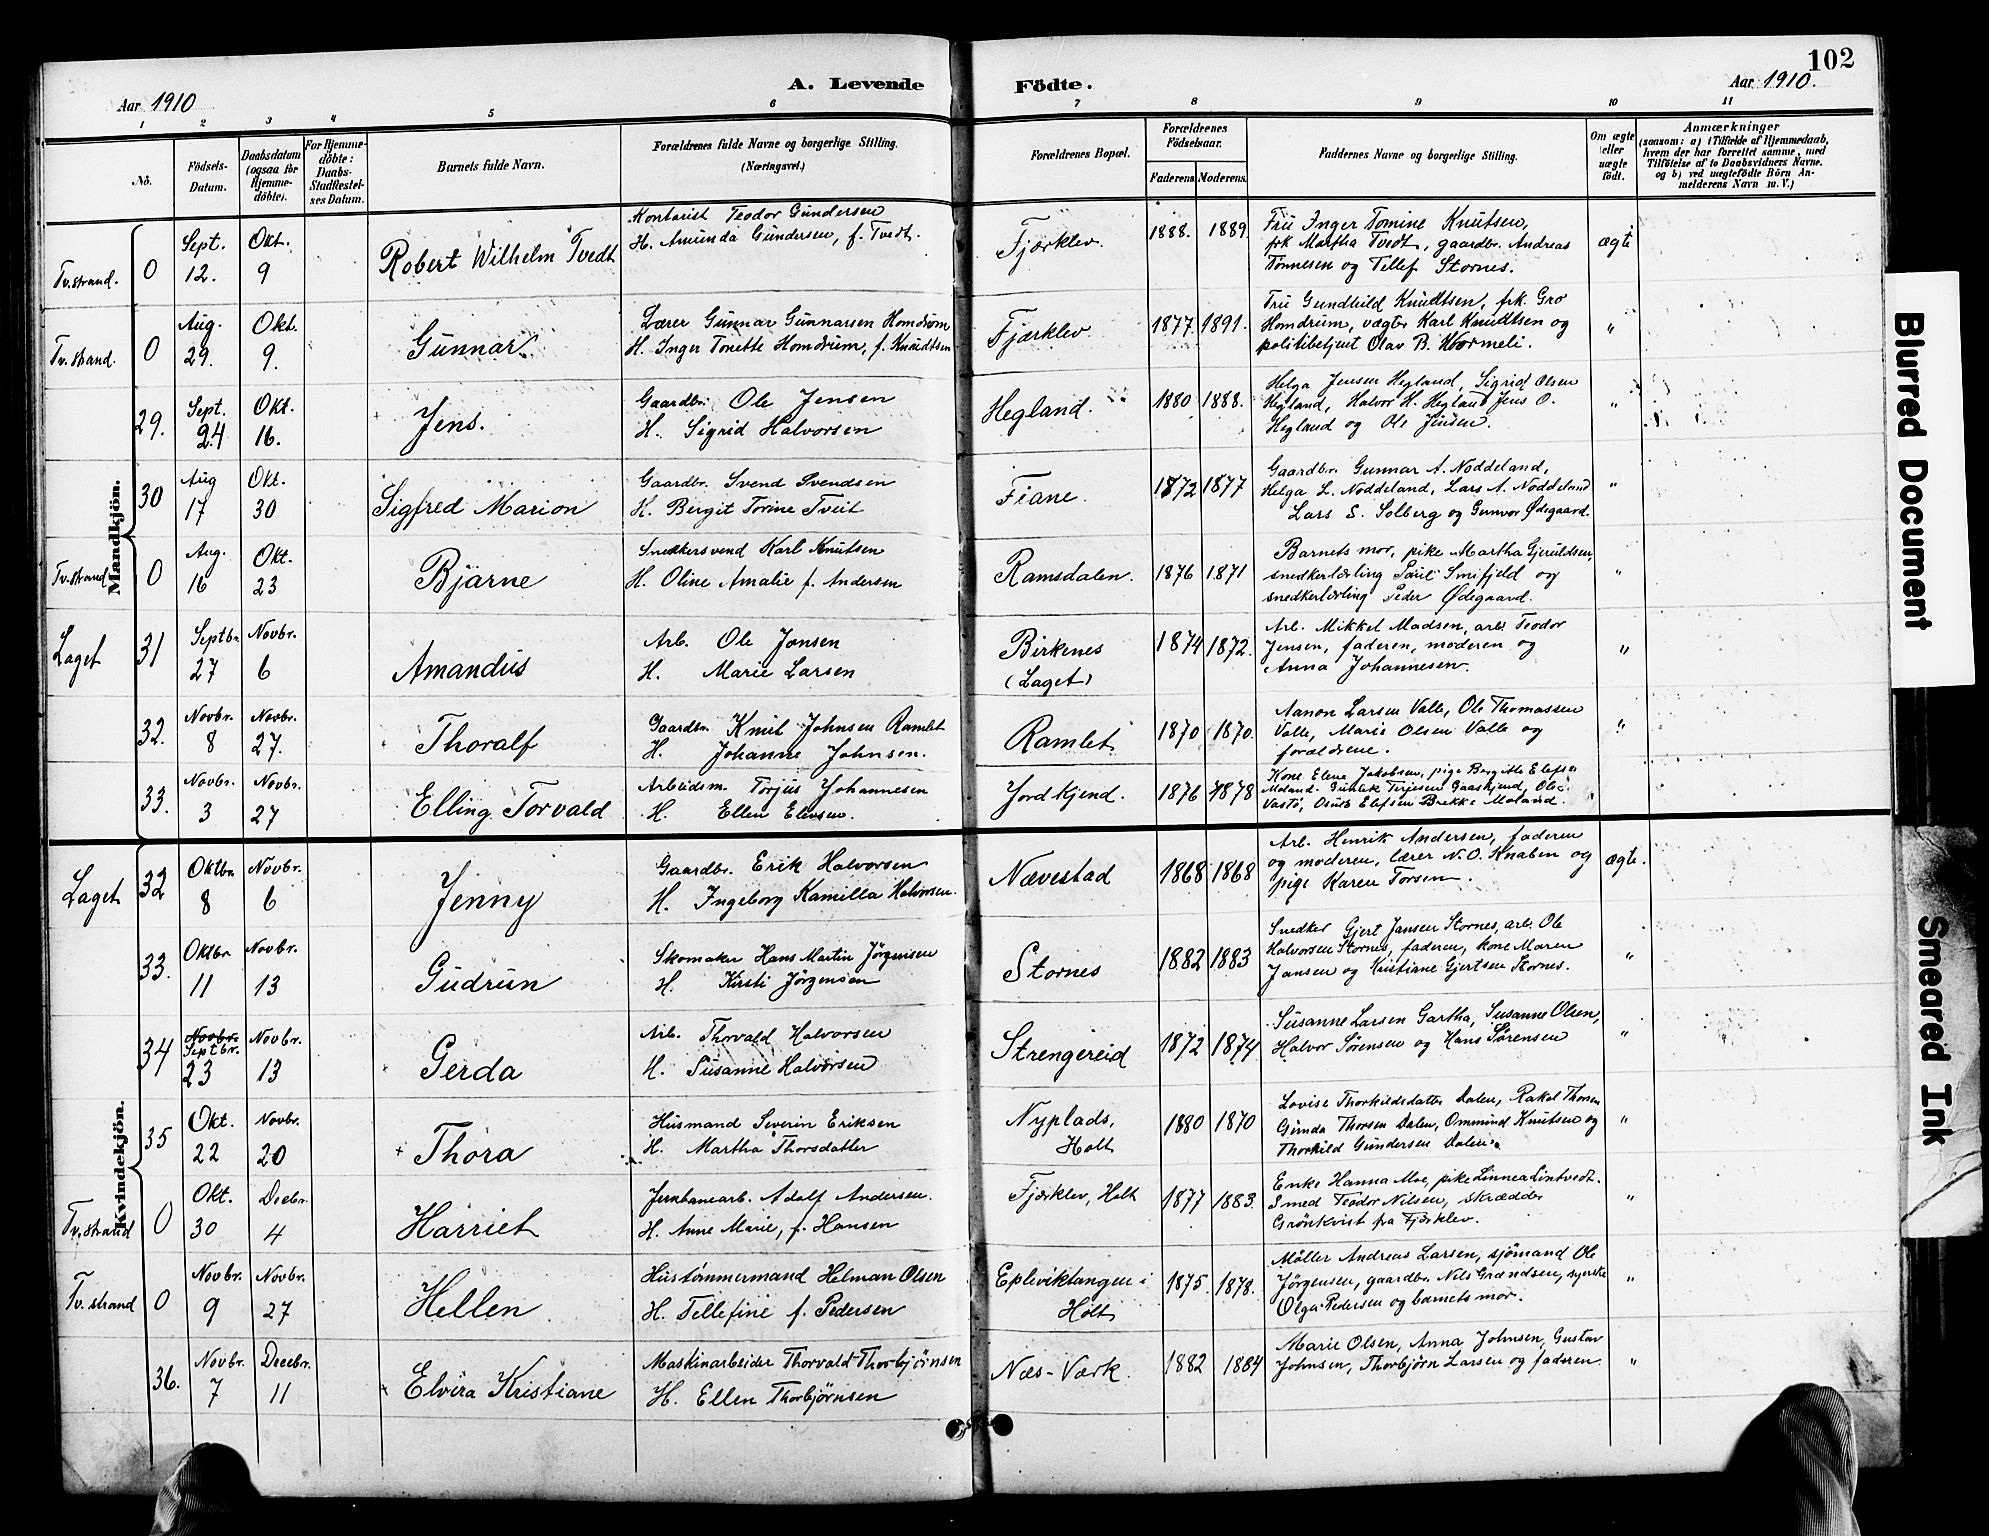 102
Aar 1910
A. Levende Födte.
Aar 1910.
1 2 3 4 5 6 7 8 9 10 11
No.
Födsels-
Datum.
Daabsdatum
(ogsaa for
Hjemme-
döbte).
For Hjemme-
döbte:
Daabs-
Stadfæstel-
ses Datum.
Barnets fulde Navn.
Forældrenes fulde Navne og borgerlige Stilling.
(Næringsvei.)
Forældrenes Bopæl.
Forældrenes
Födselsaar.
Faderens Moderens.
Faddernes Navne og borgerlige Stilling.
Om ægte
eller
uægte
födt.
Anmærkninger
(saasom: a) i Tilfælde af Hjemmedaab,
hvem der har forrettet samme, med
Tilföielse af to Daabsvidners Navne.
og b) ved uægtefödte Börn An-
melderens Navn m. V.)
Mandkjön.
Tv.strand. 0
Sept.
12.
Okt.
9
Robert Wilhelm Tvedt
Kontorist Teodor Gundersen
H. Amunda Gundersen, f. Tvedt.
Fjærklev.
1888. 1889.
Fru Inger Tomine Knutsen,
frk Martha Tvedt, gaardbr. Andreas
Tönnesen og Tellef Stornes.
ægte
Tv.strand. 0
Aug.
29.
Okt.
9.
Gunnar.
Lærer Gunnar Gunnarsen Homdrom
H. Inger Tonette Homdrum, f. Knudtsen
Fjærklev
1877. 1891.
Fru Gundhild Knudtsen, frk. Gro
Homdrum, vægter Karl Knudtsen og
politibetjent Olav B. Wormeli.
"
29.
Sept.
24
Okt.
16.
Jens.
Gaardbr. Ole Jensen
H. Sigrid Halvorsen
Hegland.
1880 1888.
Helga Jensen Hegland, Sigrid Olsen
Hegland, Halvor H. Hegland Jens O.
Hegland og Ole Jensen.
"
30
Aug
17
Okt.
30
Sigfred Marion
Gaardbr. Svend Svendsen
H. Bergit Torine Tveit
Fiane.
1872 1877
Gaardbr. Gunnar A. Noddeland,
Helga L. Noddeland, Lars A. Noddeland
Lars S. Solberg og Gunvor Ødegaard.
"
Tv.strand 0
Aug.
16
Okt.
23
Bjarne
Snedkersvend Karl Knutsen
H. Oline Amalie f. Andersen
Ramsdalen.
1876 1871
Barnets mor, pike Martha Gjeruldsen,
snedkerlærling Paul Smifjeld og
snedkerlærling Peder Ødegaard.
"
Laget 31
Septbr.
27
Novbr.
6
Amandus
Arb. Ole Jonsen
H. Marie Larsen
Birkenes
(Laget)
1874 1872.
Arb. Mikkel Madsen, arb. Teodor
Jensen, faderen, moderen og
Anna Johannesen.
"
32.
Novbr.
8
Novbr.
27.
Thoralf
Gaardbr. Knut Johnsen Ramlet
H. Johanne Johnsen.
Ramlet
1870 1870.
Aanon Larsen Valle, Ole Thomassen
Valle, Marie Olsen Valle og
forældrene.
"
33.
Novbr.
3
Novbr.
27
Elling Torvald
Arbeidsm. Torjus Johannesen
H. Ellen Elevsen.
Jordkjend.
1876 1878
Kone Elene Jakobsen, pige Bergitte Elefsen
Moland. Terjesen Gaaskjend, Ole
Elefsen Brekke Moland.
Kvindekjön.
Laget 32
Oktbr.
8
Novbr.
6
Jenny
Gaardbr. Erik Halvorsen
H. Ingeborg Kamilla Halvorsen.
Nævestad
1868 1868
Arb. Henrik Andersen, faderen
og moderen, lærer N. O. Knaben og
pige Karen Torsen.
ægte.
33.
Oktbr.
11
Novbr.
13
Gudrun
Skomaker Hans Martin Jörgensen
H. Kirsti Jörgensen
Stornes
1882 1883
Snedker Gjert Jansen Stornes, arb. Ole
Halvorsen Stornes, faderen, kone Maren
Jansen og Kristiane Gjertsen Stornes.
"
34
Novbr.
Septbr.
23
Novbr.
13
Gerda
Arb. Thorvald Halvorsen
H. Susanne Halvorsen
Strengereid
1872 1874
Susanne Larsen Gartha, Susanne Olsen,
Halvor Sørensen og Hans Sørensen
"
35
Okt.
22
Novbr.
20
Thora
Husmand Severin Eriksen
H. Martha Thorsdatter
Nyplads,
Holt
1880 1870
Lovise Thorkildsdatter Dalen, Rakel Thorsen
Gunda Thorsen Dalen, Ommund Knutsen og
Thorkild Gundersen Dalen.
"
Tv.strand 0
Okt.
30
Decbr.
4
Harriet
Jernbanearb. Adolf Andersen.
H. Anne Marie, f. Hansen
Fjærklev, Holt
1877 1883.
Enke Hanna Moe, pike Linnea Lintvedt.
Smed Teodor Nilsen, skrædder
Grönkvist fra Fjærklev.
"
Tv.strand 0
Novbr.
9
Novbr.
27
Hellen
Hustømmermand Helman Olsen
H. Tellefine f. Pedersen
Epleviktangen i
Holt
1875. 1878.
Møller Andreas Larsen, sjömand Ole
Jörgensen, gaardbr. Nils Grændsen, syerske
Olga Pedersen og barnets mor.
"
36.
Novbr.
7
Decebr.
11
Elvira Kristiane
Maskinarbeider Thorvald Thorbjørnsen
H. Ellen Thorbjørnsen
Næs-Værk.
1882 1884
Marie Olsen, Anna Johnsen, Gustav
Johnsen, Thorbjörn Larsen og faderen.
"
Blurred Document
Smeared Ink